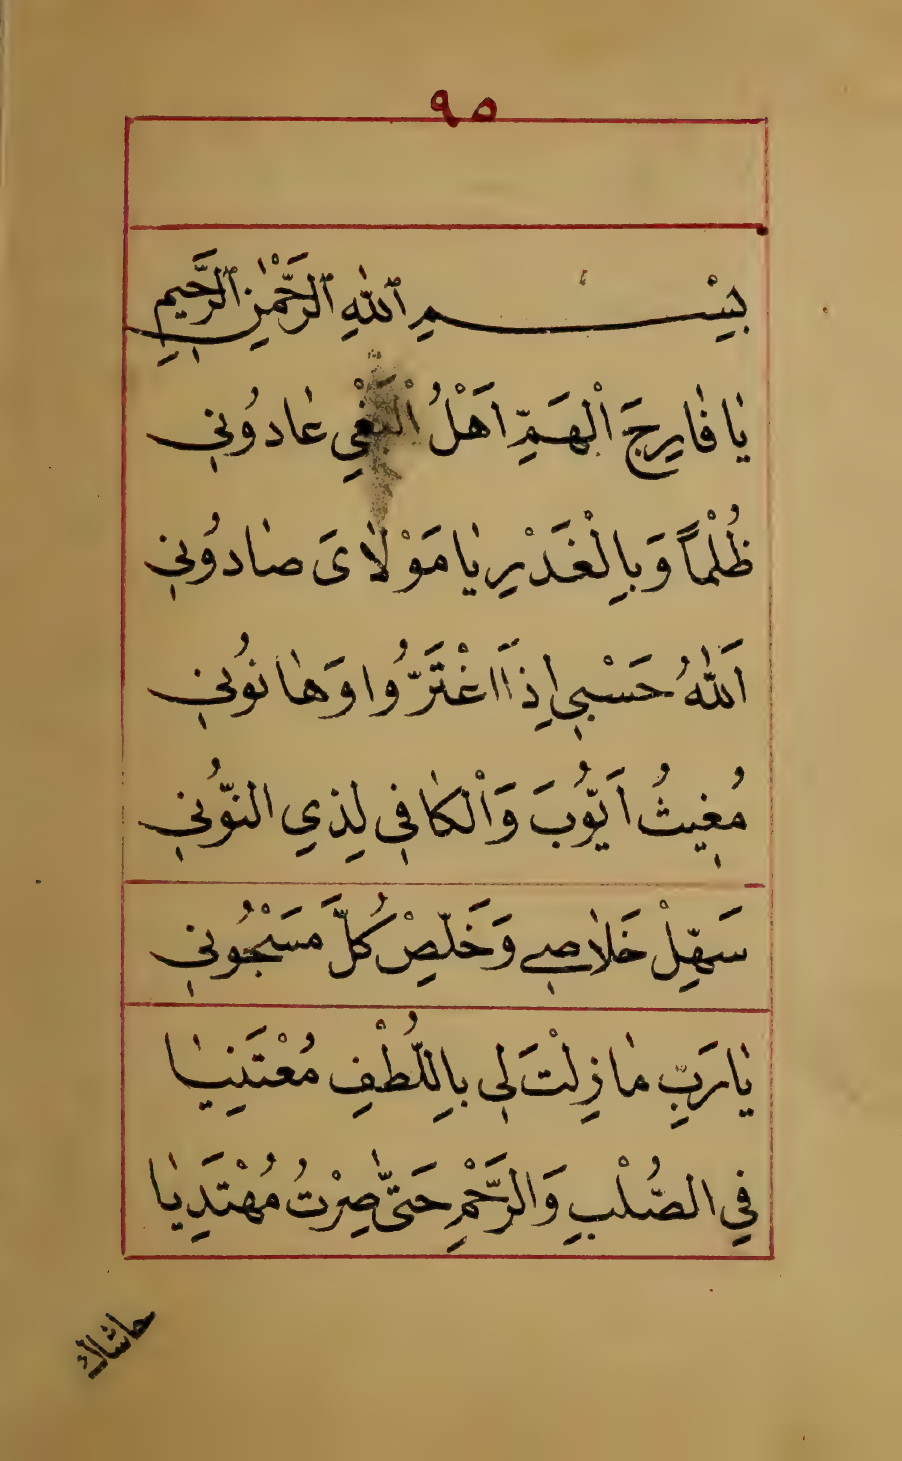 ٩٥
بِسْمِ ٱللّٰهِ ٱلرَّحْمٰنِ ٱلرَّحِيمِ
يٰا فٰارِجَ الْهَمِّ اَهْلُ الْبَغْيِ عٰادُوُنِي
ظُلْماً وَبِالْغَدْرِ يٰا مَوْلٰايَ صٰادُوُنِي
اَللّٰهُ حَسْبِي اِذَا اغْتَرُّوا وَهٰانُوُنِي
مُغِيثُ اَيُّوُبَ وَالْكٰافِي لِذِي النُّوُنِي
سَهِّلْ خَلٰاصِي وَخَلِّصْ كُلَّ مَسْجُوُنِي
يٰا رَبِّ مٰا زِلْتَ لِي بِاللُّطْفِ مُعْتَنِيٰا
فِي الصُّلْبِ وَالرَّحْمِ حَتّٰى صِرْتُ مُهْتَدِيٰا
حاشاك